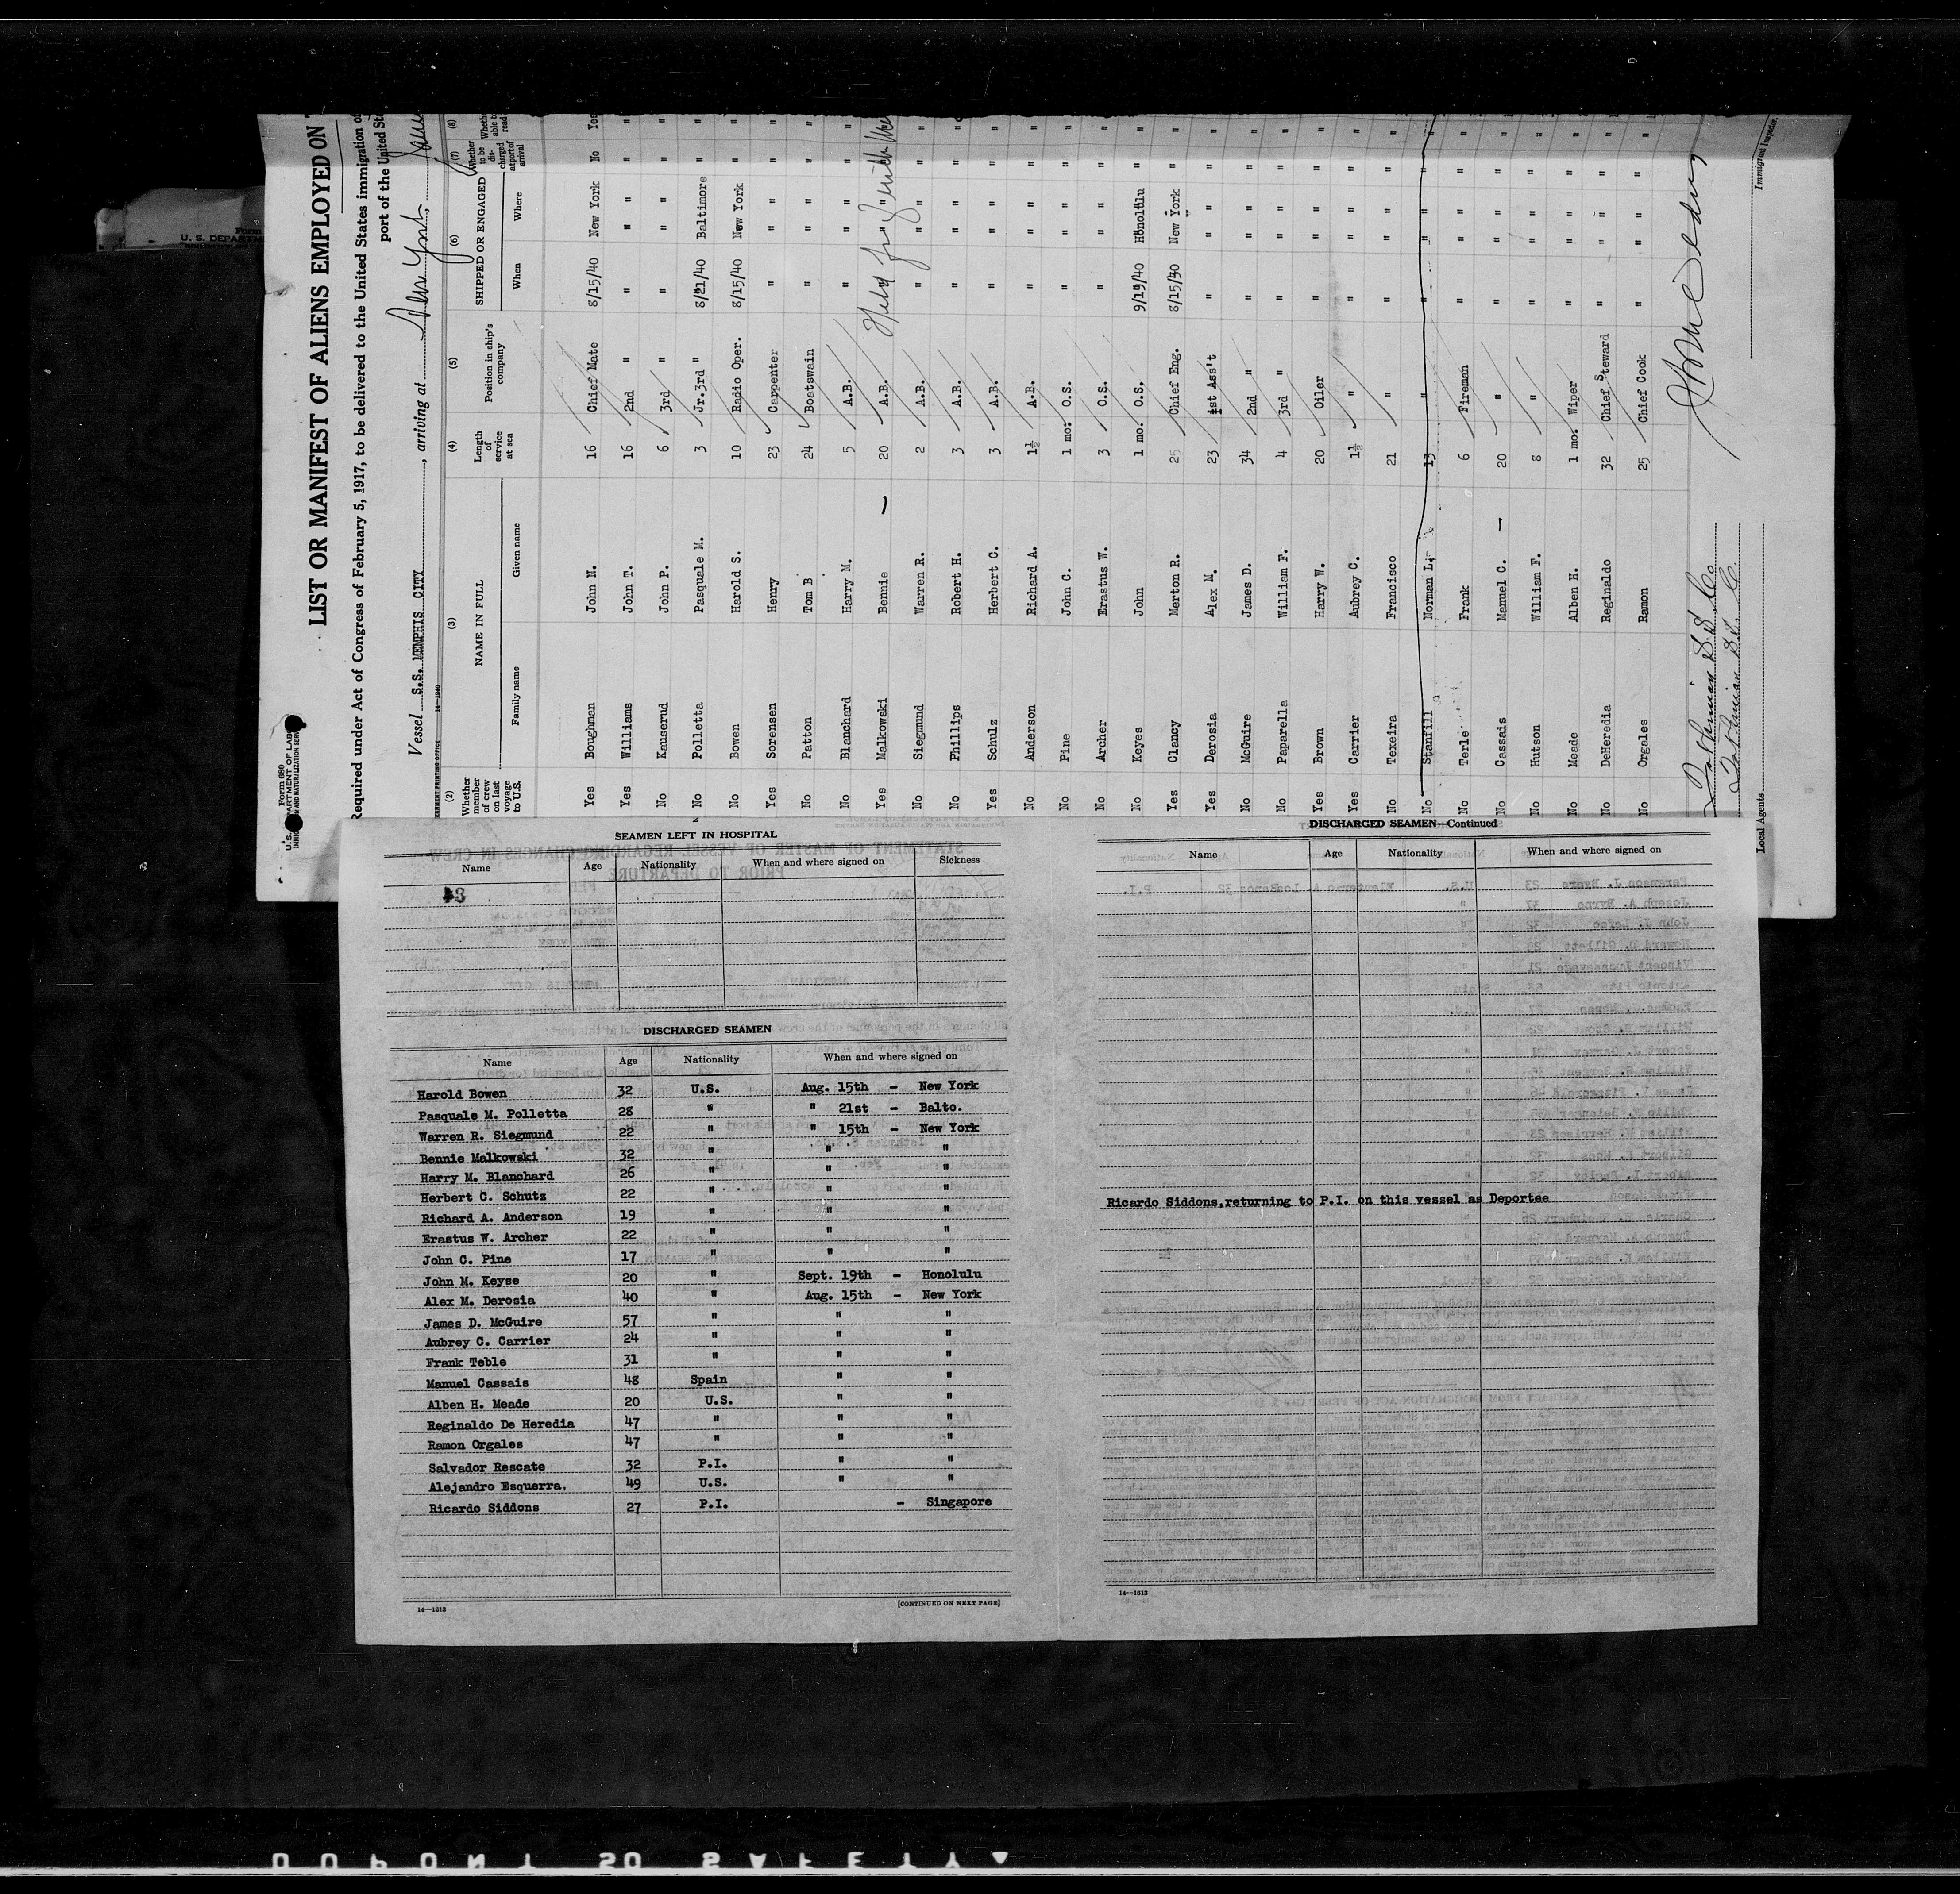 Form 680
U.S. DEPARTMENT OF LABOR
IMMIGRATION AND NATURALIZATION SERVICE
LIST OR MANIFEST OF ALIENS EMPLOYED ON
Required under Act of Congress of February 5, 1917, to be delivered to the United States immigration
port of the United
Vessel S.S. MEMPHIS CITY, arriving at New York,
(2) (3) (4) (5) (6) (7) (8)
Whether member of crew on last voyage to U.S. NAME IN FULL Family name Given name Length of service at sea Position in ship's company SHIPPED OR ENGAGED When Where Whether to be discharged at port of arrival
Yes Boughman John N. 16 Chief Mate 8/15/40 New York No Yes
Yes Williams John T. 16 2nd " " " " "
No Kauserud John P. 6 3rd " " " " "
No Polletta Pasquale M. 3 Jr. 3rd " 8/21/40 Baltimore " "
No Bowen Harold S. 10 Radio Oper. 8/15/40 New York " "
Yes Sorensen Henry 23 Carpenter " " " " "
No Patton Tom B 24 Boatswain " " " " "
No Blanchard Harry M. 5 A.B. " " " " "
Yes Malkowski Bennie 20 A.B. Held for
No Siegmund Warren R. 2 A.B. " " " " "
No Phillips Robert H. 3 A.B. " " " " "
Yes Schulz Herbert C. 3 A.B. " " " " "
No Anderson Richard A. 1½ A.B. " " " " "
No Pine John C. 1 mo. O.S. " " " " "
No Archer Erastus W. 3 O.S. " " " " "
No Keyes John 1 mo. O.S. 9/19/40 Honolulu " "
Yes Clancy Merton R. 25 Chief Eng. 8/15/40 New York " "
Yes Derosia Alex M. 23 1st Ass't " " " " "
No McGuire James D. 34 2nd " " " " " "
No Paparella William F. 4 3rd " " " " " "
Yes Brown Harry W. 20 Oiler " " " " "
Yes Carrier Aubrey C. 1½ " " " " " "
No Texeira Francisco 21 " " " " " "
No Stanfill Norman L. 13 " " " " " "
No Terle Frank 6 Fireman " " " " "
No Cassais Manuel C. 20 " " " " " "
No Hutson William F. 8 " " " " " "
No Meade Alben H. 1 mo. Wiper " " " " "
No DeHeredia Reginaldo 32 Chief Steward " " " " "
No Orgales Ramon 25 Chief Cook " " " " "
Local Agents
Immigrant Inspector.
SEAMEN LEFT IN HOSPITAL
Name Age Nationality When and where signed on Sickness
DISCHARGED SEAMEN
Name Age Nationality When and where signed on
Harold Bowen 32 U.S. Aug. 15th - New York
Pasquale M. Polletta 28 " " 21st - Balto.
Warren R. Siegmund 22 " " 15th - New York
Bennie Malkowski 32 " " "
Harry M. Blanchard 26 " " "
Herbert C. Schutz 22 " " "
Richard A. Anderson 19 " " "
Erastus W. Archer 22 " " "
John C. Pine 17 " " "
John M. Keyse 20 " Sept. 19th - Honolulu
Alex M. Derosia 40 " Aug. 15th - New York
James D. McGuire 57 " " "
Aubrey C. Carrier 24 " " "
Frank Teble 31 " " "
Manuel Cassais 48 Spain " "
Alben H. Meade 20 U.S. " "
Reginaldo De Heredia 47 " " "
Ramon Orgales 47 " " "
Salvador Rescate 32 P.I. " "
Alejandro Esquerra. 49 U.S. " "
Ricardo Siddons 27 P.I. - Singapore
14—1612
[CONTINUED ON NEXT PAGE]
DISCHARGED SEAMEN—Continued
Name Age Nationality When and where signed on
Ricardo Siddons,returning to P.I. on this vessel as Deportee
14—1612
DUPONT SAFETY